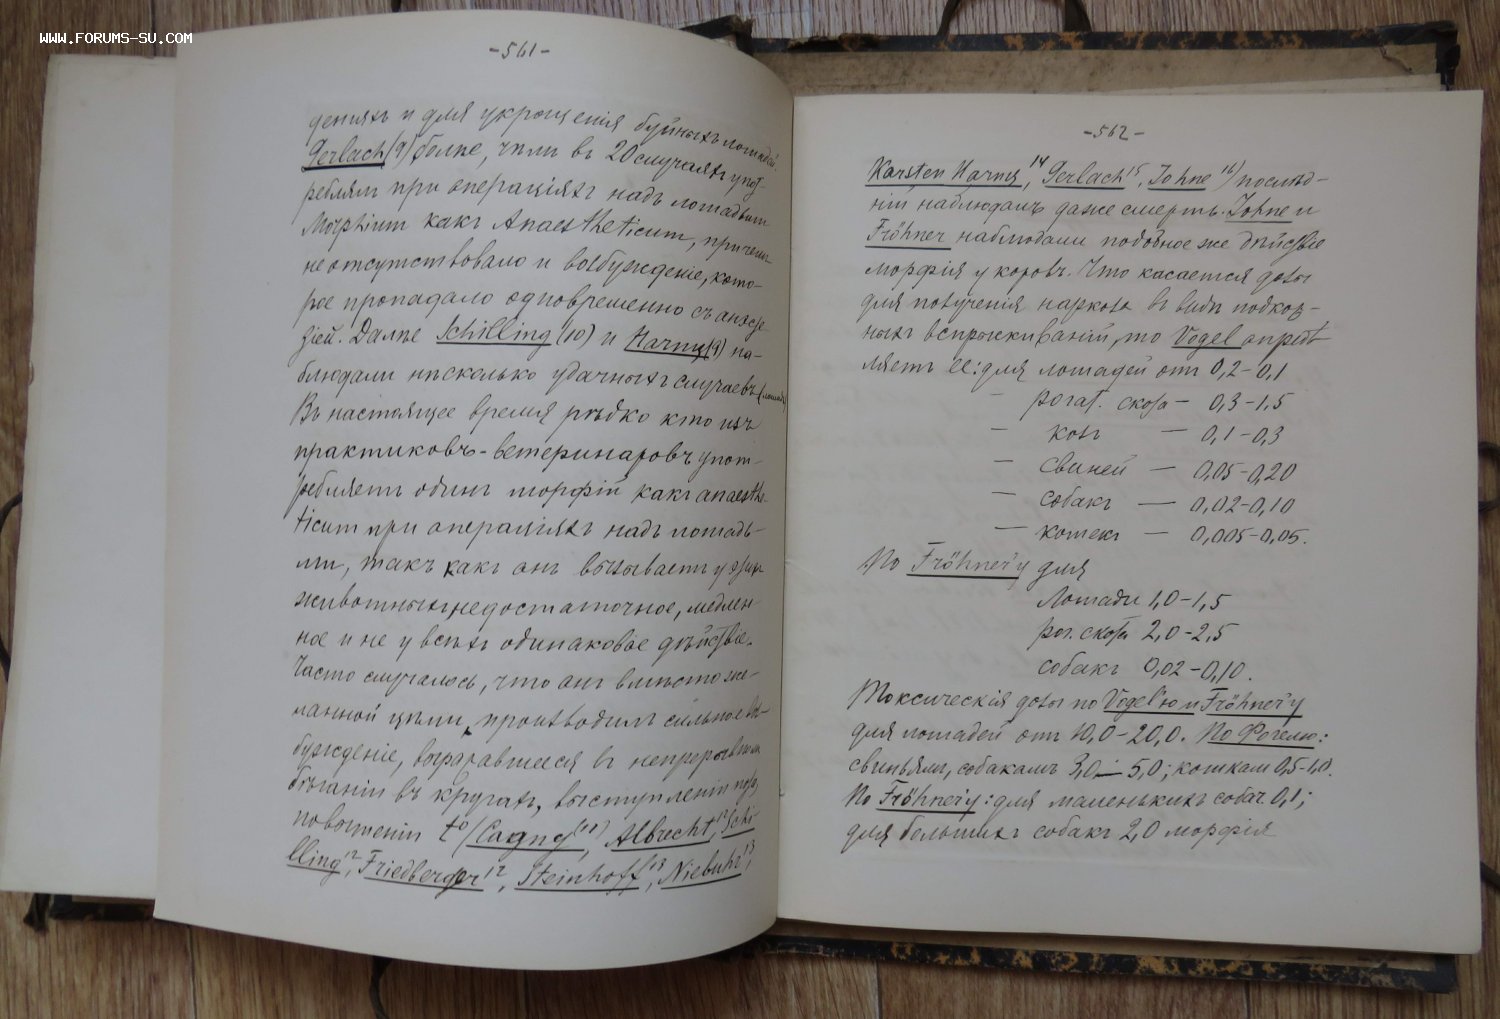 www.forums-su.com
-561-
денiяхъ и для укрощенiя буйныхъ лошадей.
Gerlach (9) болѣе, чѣмъ въ 20 случаяхъ упот-
реблялъ при операцiяхъ надъ лошадьми
Morphium какъ Anaestheticum, причемъ
не отсутствовало и возбужденiе, кото-
рое пропадало одновременно съ анэсте-
зiей. Далѣе Schilling (10) и Harms (9) на-
блюдали нѣсколько удачныхъ случаевъ (лошадь)
Въ настоящее время рѣдко кто изъ
практиковъ-ветеринаровъ упот-
ребляетъ одинъ морфiй какъ anaesthe-
ticum при операцiяхъ надъ лошадь-
ми, такъ какъ онъ вызываетъ у этихъ
животныхъ недостаточное, медлен-
ное и не у всѣхъ одинаковое дѣйствiе.
Часто случалось, что онъ вмѣсто же-
ланной цѣли, производилъ сильное воз-
бужденiе, выражавшееся въ непрерывномъ
бѣганiи въ кругахъ, выступленiи пота,
повышенiи t° (Cagny (11), Albrecht, 12 Schi-
lling 12, Friedberger 12, Steinhoff 13, Niebuhr 13,
-562-
Karsten Harms, 14 Gerlach 15, Johne 16) послѣд-
нiй наблюдалъ даже смерть. Johne и
Fröhner наблюдали подобное же дѣйствiе
морфiя у коровъ. Что касается дозы
для полученiя наркоза въ видѣ подкож-
ныхъ вспрыскиванiй, то Vogel опредѣ-
ляетъ ее: для лошадей от 0,2-0,1
— рогат. скота — 0,3-1,5
— козъ — 0,1-0,3
— свиней — 0,05-0,20
— собакъ — 0,02-0,10
— кошекъ — 0,005-0,05.
По Fröhner'у для
Лошади 1,0-1,5
рог. скота 2,0-2,5
собакъ 0,02-0,10.
Токсическiя дозы по Vogel'ю и Fröhner'у
для лошадей отъ 10,0-20,0. По Фогелю:
свиньямъ, собакамъ 3,0 — 5,0; кошкам 0,5-1,0.
По Fröhner'у: для маленькихъ собак 0,1;
для большихъ собакъ 2,0 морфiя